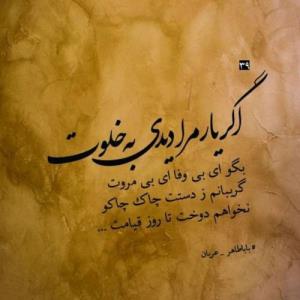 ۳۹
اگر یار مرا دیدی به خلوت
بگو ای بی وفا ای بی مروت
گریبانم ز دستت چاک چاکو
نخواهم دوخت تا روز قیامت ...
#باباطاهر _ عریان